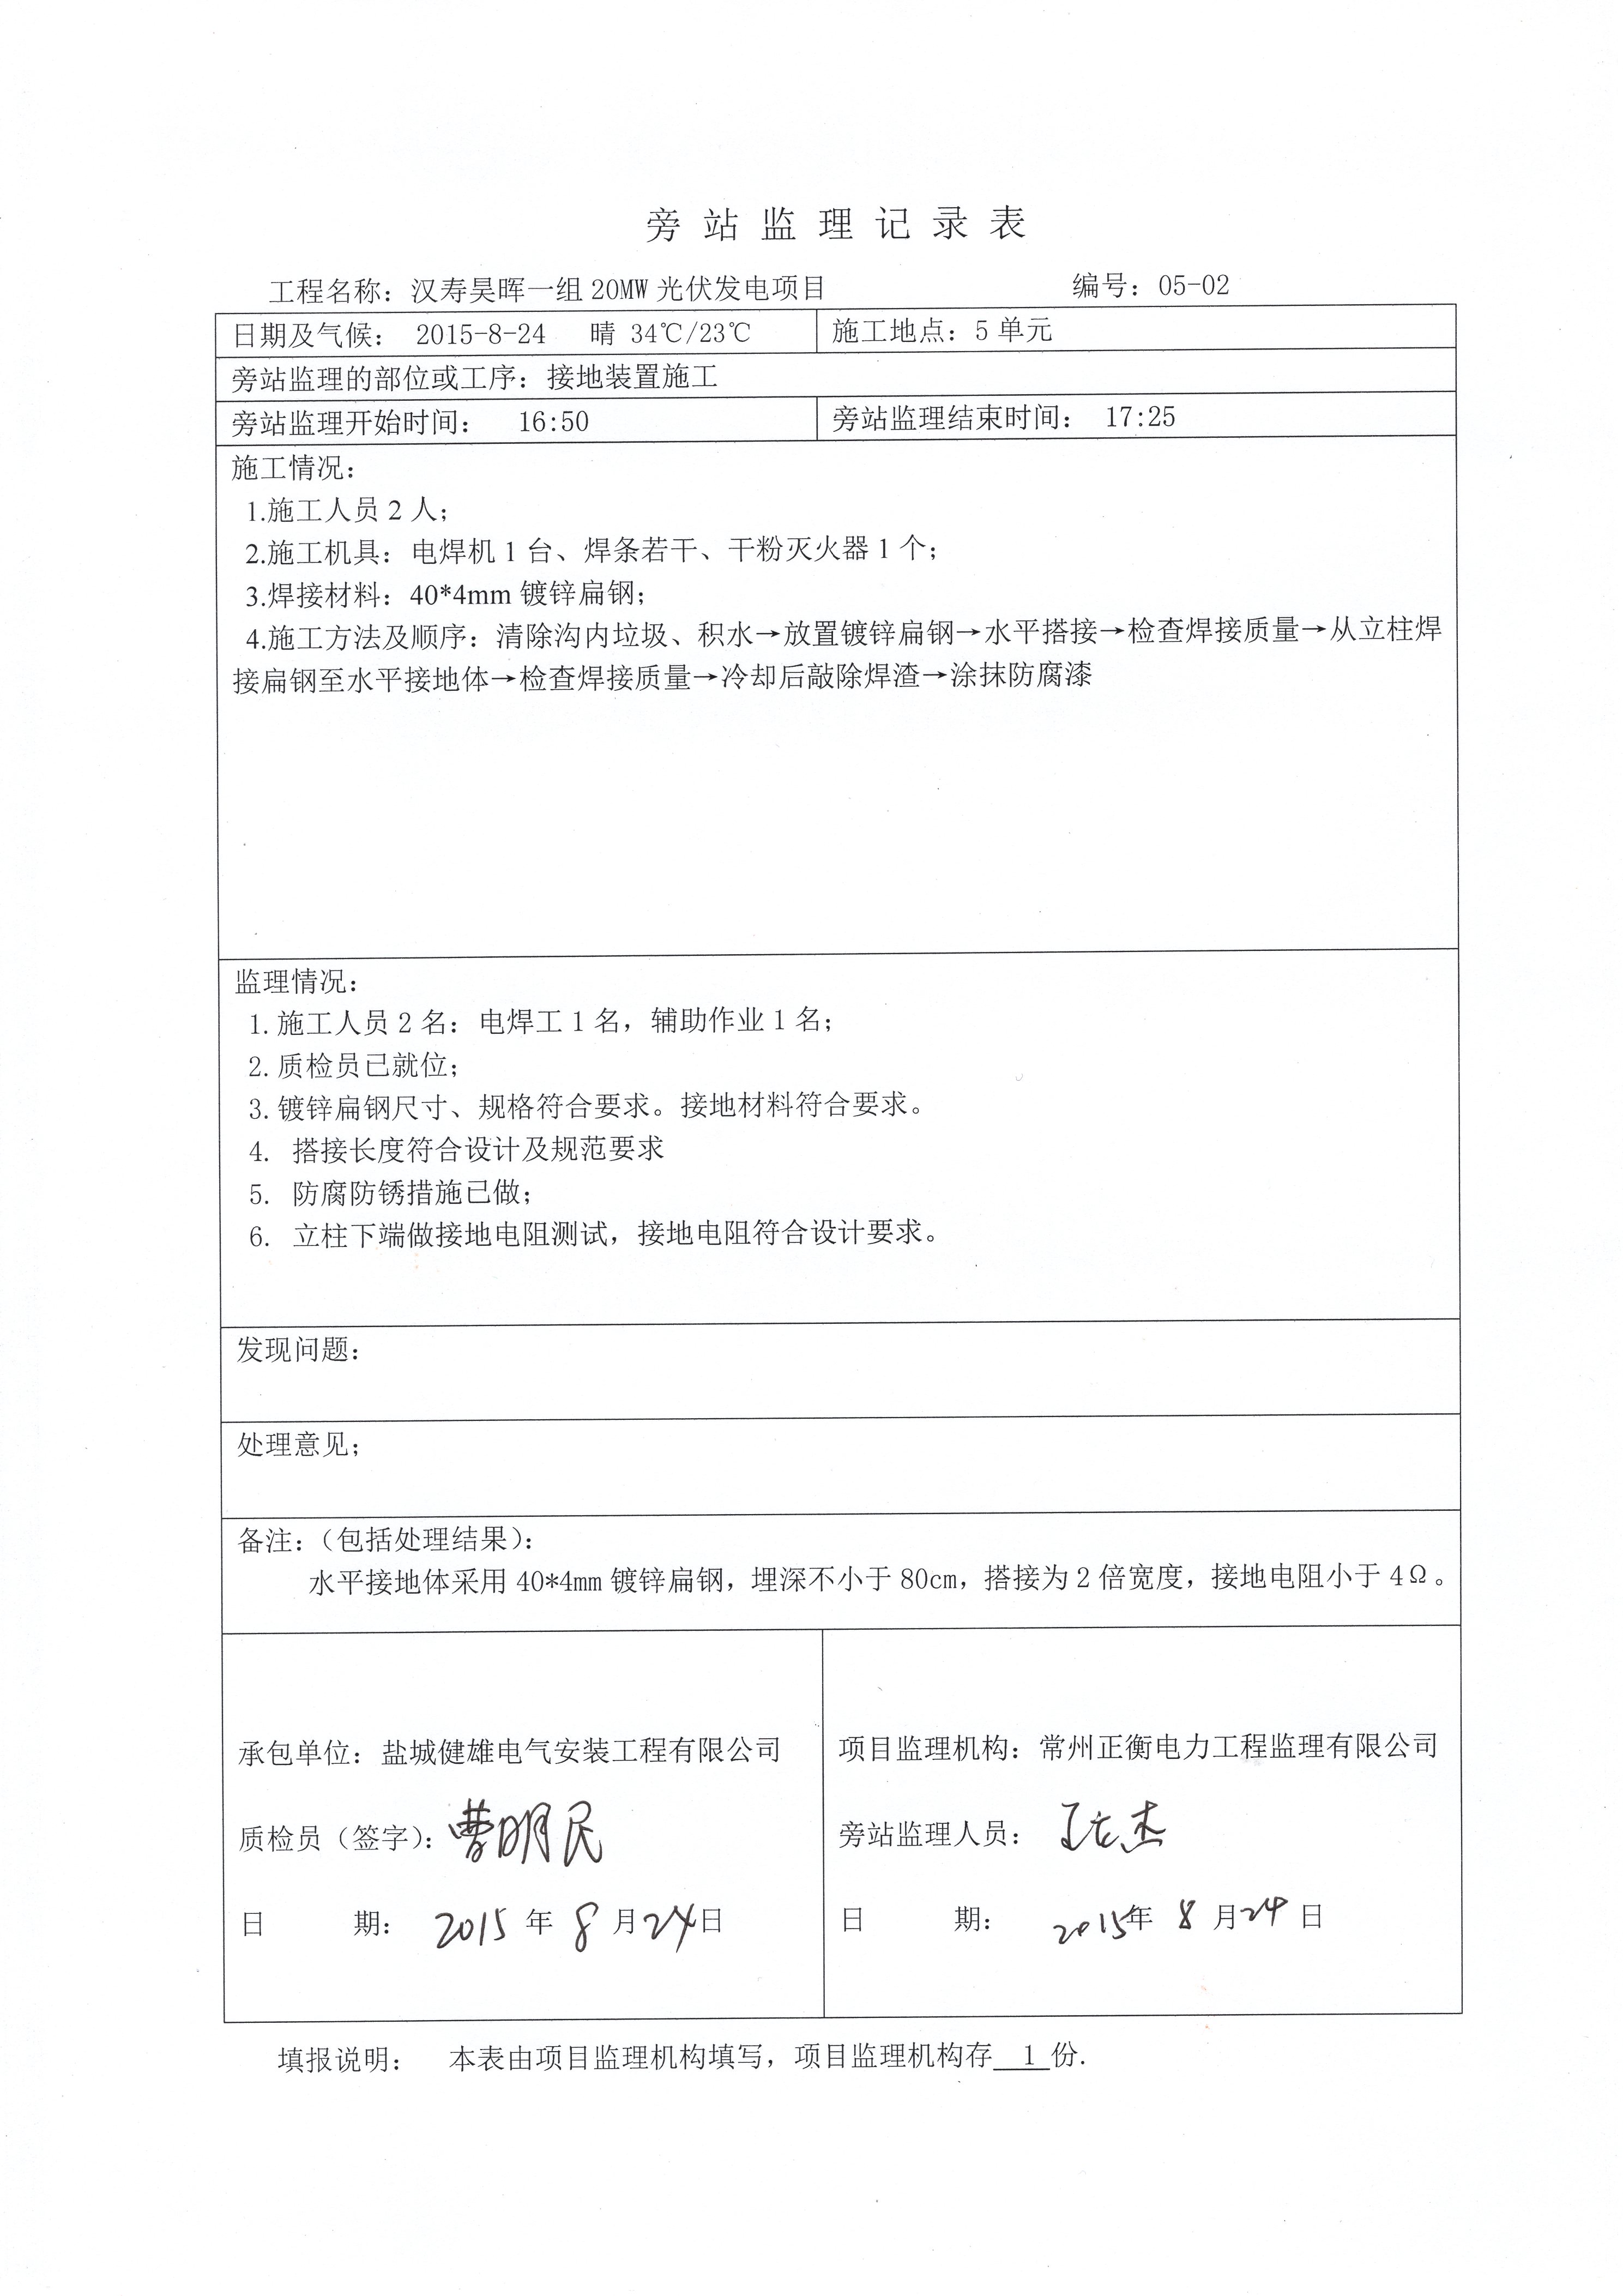 旁站监理记录表
工程名称：汉寿昊晖一组20MW光伏发电项目 编号：05-02
日期及气候： 2015-8-24 晴 34℃/23℃ 施工地点：5单元
旁站监理的部位或工序：接地装置施工
旁站监理开始时间： 16:50 旁站监理结束时间： 17:25
施工情况：
1.施工人员2人；
2.施工机具：电焊机1台、焊条若干、干粉灭火器1个；
3.焊接材料：40*4mm镀锌扁钢；
4.施工方法及顺序：清除沟内垃圾、积水→放置镀锌扁钢→水平搭接→检查焊接质量→从立柱焊
接扁钢至水平接地体→检查焊接质量→冷却后敲除焊渣→涂抹防腐漆
监理情况：
1.施工人员2名：电焊工1名，辅助作业1名；
2.质检员已就位；
3.镀锌扁钢尺寸、规格符合要求。接地材料符合要求。
4. 搭接长度符合设计及规范要求
5. 防腐防锈措施已做；
6. 立柱下端做接地电阻测试，接地电阻符合设计要求。
发现问题：
处理意见；
备注：（包括处理结果）：
水平接地体采用40*4mm镀锌扁钢，埋深不小于80cm，搭接为2倍宽度，接地电阻小于4Ω。
承包单位：盐城健雄电气安装工程有限公司 项目监理机构：常州正衡电力工程监理有限公司
质检员（签字）：曹明民 旁站监理人员：
日 期： 2015年8月24日 日 期： 2015年8月24日
填报说明： 本表由项目监理机构填写，项目监理机构存 1 份.